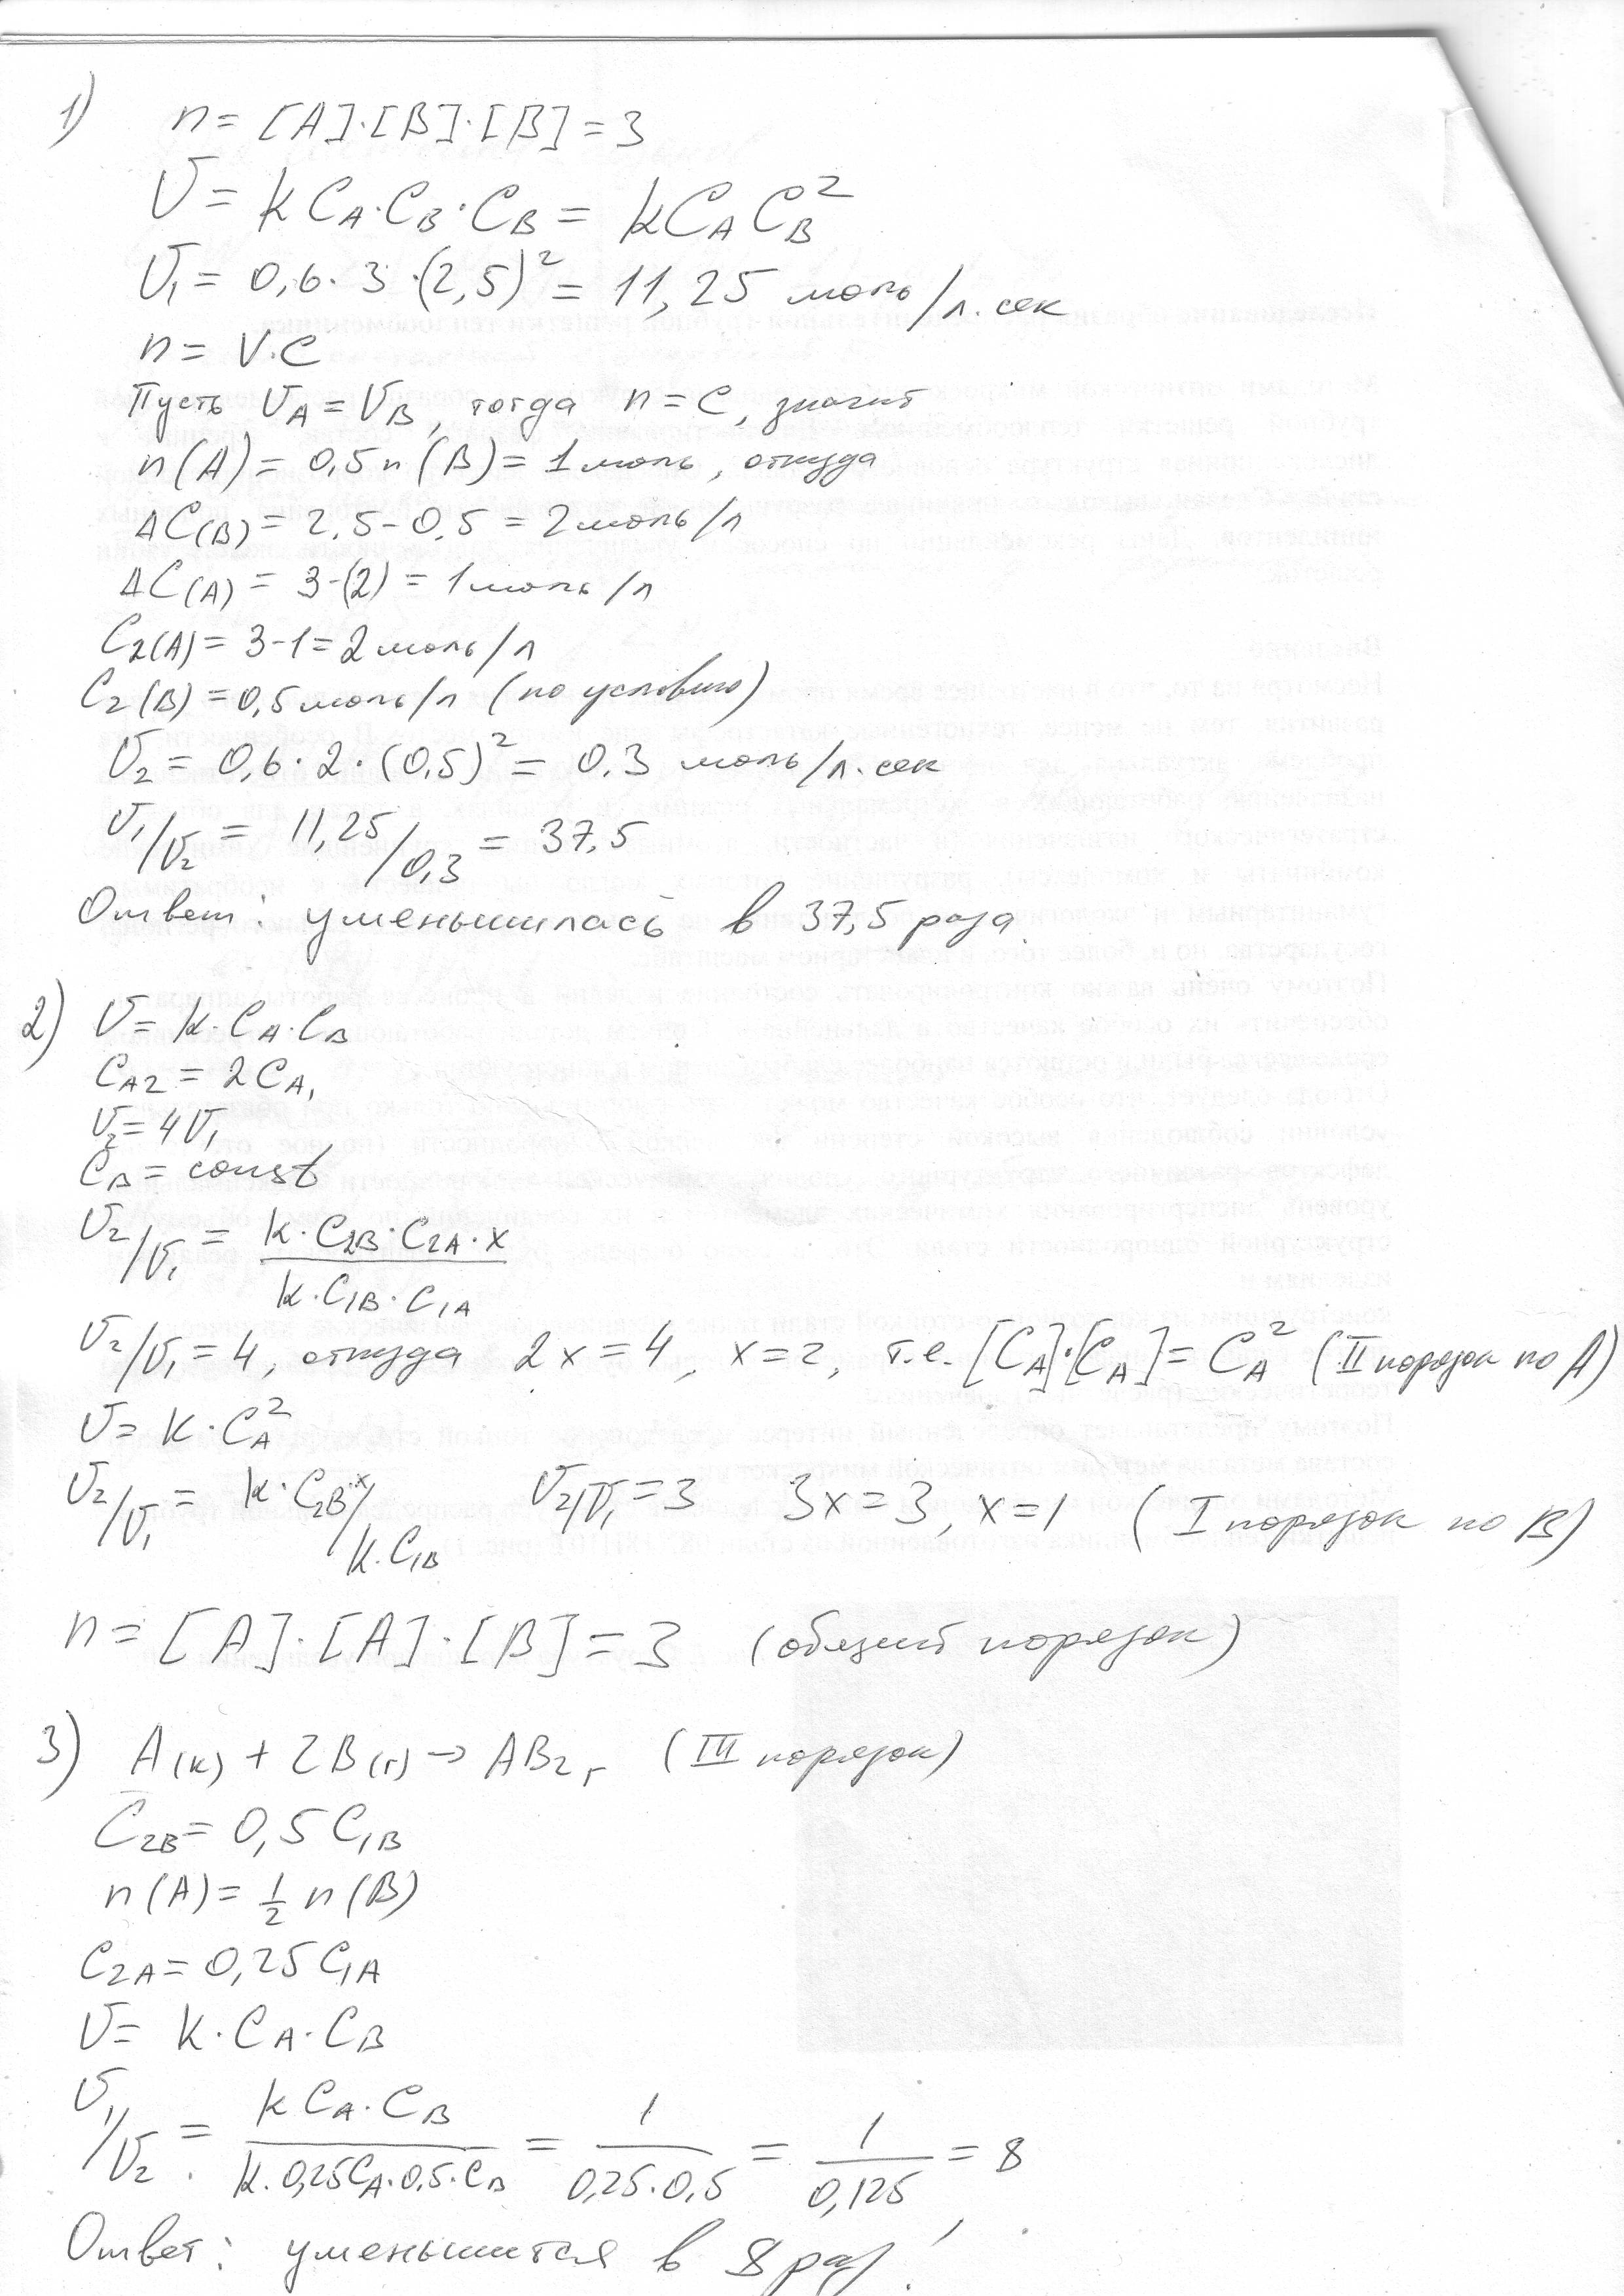 1) n = [A]·[B]·[B] = 3
V = k C_A·C_B·C_B = k C_A C_B²
V₁ = 0,6·3·(2,5)² = 11,25 моль/л.сек
n = V·C
Пусть V_A = V_B, тогда n = C, значит
n(A) = 0,5n(B) = 1 моль, откуда
ΔC(B) = 2,5-0,5 = 2 моль/л
ΔC(A) = 3-(2) = 1 моль/л
C₂(A) = 3-1 = 2 моль/л
C₂(B) = 0,5 моль/л (по условию)
V₂ = 0,6·2·(0,5)² = 0.3 моль/л.сек
V₁/V₂ = 11,25/0,3 = 37,5
Ответ: уменьшилась в 37,5 раза.
2) V = k·C_A·C_B
C_A2 = 2C_A1
V₂ = 4V₁
C_B = const
V₂/V₁ = k·C_2B·C_2A·x / k·C_1B·C_1A
V₂/V₁ = 4, откуда 2x = 4, x = 2, т.е. [C_A]·[C_A] = C_A² (II порядок по A)
V = k·C_A²
V₂/V₁ = k·C_2B·x/k.C_1B V₂/V₁ = 3 3x = 3, x = 1 (I порядок по B)
n = [A]·[A]·[B] = 3 (общий порядок)
3) A(к) + 2B(г) → AB₂ г (III порядок)
C_2B = 0,5 C_1B
n(A) = 1/2 n(B)
C_2A = 0,25 C_1A
V = k·C_A·C_B
V₁/V₂ = k C_A·C_B / k.0,25C_A·0,5·C_B = 1/0,25.0,5 = 1/0,125 = 8
Ответ: уменьшится в 8 раз.